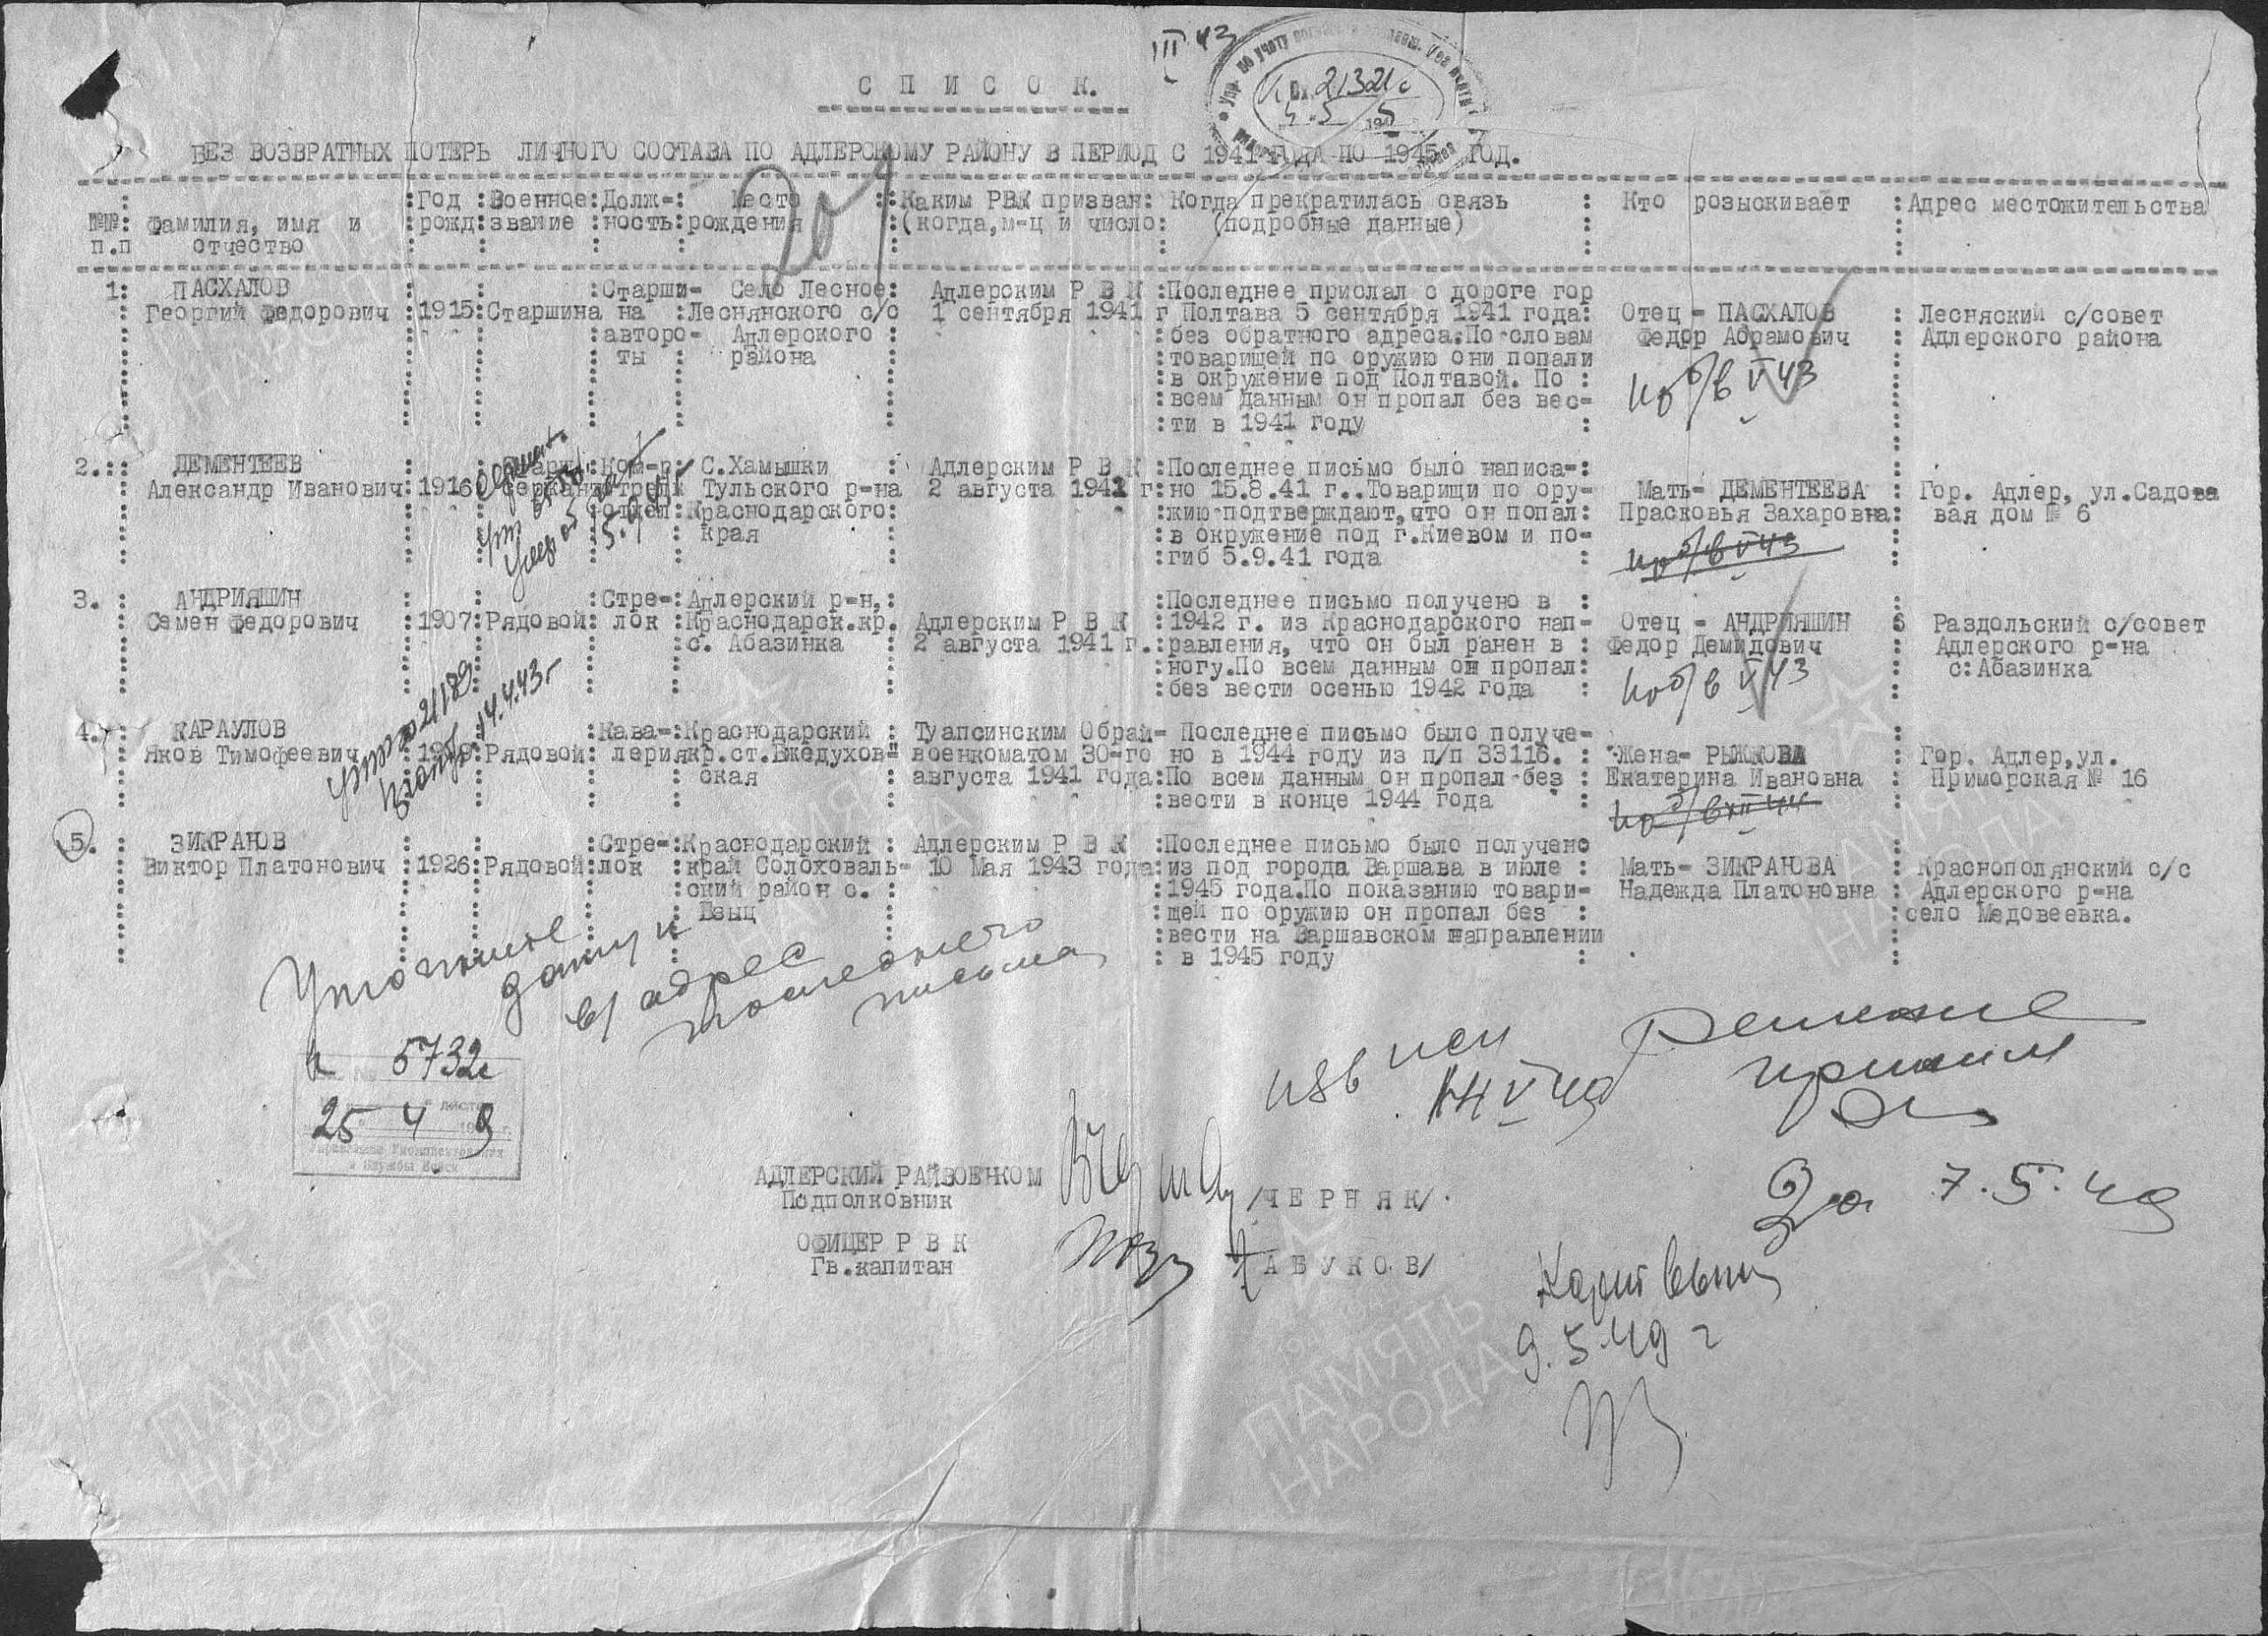 III 43
С П И С О К.
Вх. 21321с
БЕЗ ВОЗВРАТНЫХ ПОТЕРЬ ЛИЧНОГО СОСТАВА ПО АДЛЕРСКОМУ РАЙОНУ В ПЕРИОД С 1941 ГОДА ПО 1945 ГОД.
209
№№ п.п : Фамилия, имя и отчество : Год рожд : Военное звание : Долж-ность : Место рождения : Каким РВК призван (когда, м-ц и число : Когда прекратилась связь (подробные данные) : Кто розыскивает : Адрес местожительства
1: ПАСХАЛОВ :Старши- Село Лесное: Адлерским Р В К :Последнее прислал с дороге гор
Георгий Федорович :1915:Старшина на :Леснянского с/с 1 сентября 1941 г Полтава 5 сентября 1941 года: Отец - ПАСХАЛОВ : Лесняский с/совет
:авторо- Адлерского : :без обратного адреса.По словам Федор Абрамович : Адлерского района
ты : района :товарищей по оружию они попали
:в окружение под Полтавой. По :
:всем данным он пропал без вес-
:ти в 1941 году
V 43
2. ДЕМЕНТЕЕВ :Ком-р: С.Хамышки : Адлерским Р В К :Последнее письмо было написа-:
Александр Иванович: 1916 Сержант Тульского р-на 2 августа 1941 г:но 15.8.41 г..Товарищи по ору- Мать- ДЕМЕНТЕЕВА : Гор. Адлер, ул.Садова
отдел :Краснодарского: :жию подтверждают,что он попал: Прасковья Захаровна: вая дом № 6
края :в окружение под г.Киевом и по-
:гиб 5.9.41 года
3. : АНДРИЯШИН :Стре-:Адлерский р-н,: :Последнее письмо получено в :
Семен Федорович :1907:Рядовой: лок :Краснодарск.кр. Адлерским Р В К :1942 г. из Краснодарского нап- Отец - АНДРИЯШИН Раздольский с/совет
:с. Абазинка : 2 августа 1941 г.:равления, что он был ранен в : Федор Демидович : Адлерского р-на
:ногу.По всем данным он пропал: с:Абазинка
:без вести осенью 1942 года :
V 43
21189
14.4.43
4. КАРАУЛОВ :Кава-:Краснодарский : Туапсинским Обрай- Последнее письмо было получе-
Яков Тимофеевич :Рядовой: лериякр.ст.Бжедухов- военкоматом 30-го но в 1944 году из п/п 33116. : Жена- РЫЖКОВА : Гор. Адлер,ул.
ская августа 1941 года:По всем данным он пропал без : Екатерина Ивановна : Приморская № 16
:вести в конце 1944 года :
5. : ЗИКРАНОВ :Стре-:Краснодарский : Адлерским Р В К :Последнее письмо было получено
Виктор Платонович :1926:Рядовой:лок :край Солоховаль- 10 Мая 1943 года:из под города Варшава в июле : Мать- ЗИКРАНОВА : Краснополянский с/с
ский район с. : :1945 года.По показанию товари- Надежда Платоновна : Адлерского р-на
:щей по оружию он пропал без : :село Медовеевка.
:вести на Варшавском направлении
: в 1945 году
Уточнение
данных
адрес
последнего
письма
5732с
25 4 9
изв
V 49
Решение
7.5.49
АДЛЕРСКИЙ РАЙВОЕНКОМ
Подполковник /ЧЕРНЯК/.
ОФИЦЕР Р В К
Гв.капитан АБУКОВ/
9.5.49 г
ПАМЯТЬ
НАРОДА
ПАМЯТЬ
НАРОДА